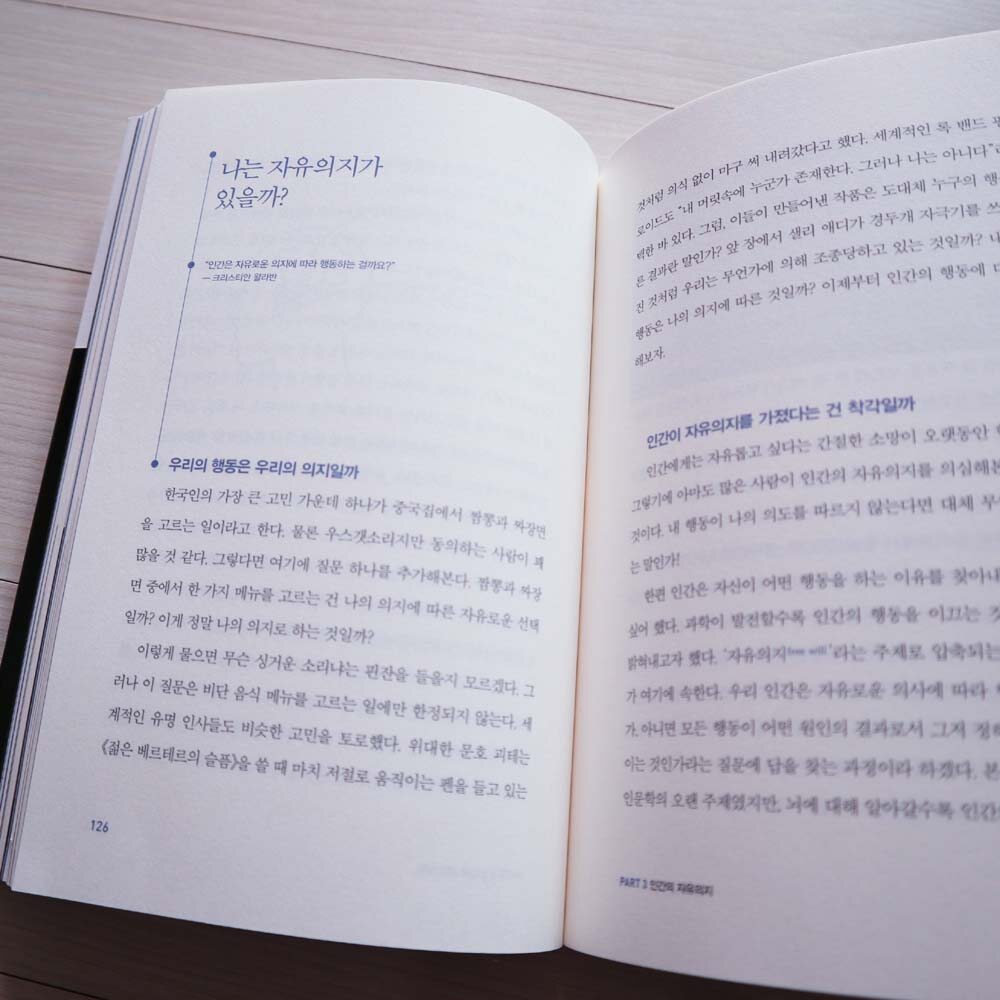 나는 자유의지가
있을까?
“인간은 자유로운 의지에 따라 행동하는 걸까요?”
— 크리스티안 왈라반
우리의 행동은 우리의 의지일까
한국인의 가장 큰 고민 가운데 하나가 중국집에서 짬뽕과 짜장면
을 고르는 일이라고 한다. 물론 우스갯소리지만 동의하는 사람이 꽤
많을 것 같다. 그렇다면 여기에 질문 하나를 추가해본다. 짬뽕과 짜장
면 중에서 한 가지 메뉴를 고르는 건 나의 의지에 따른 자유로운 선택
일까? 이게 정말 나의 의지로 하는 것일까?
이렇게 물으면 무슨 싱거운 소리냐는 핀잔을 들을지 모르겠다. 그
러나 이 질문은 비단 음식 메뉴를 고르는 일에만 한정되지 않는다. 세
계적인 유명 인사들도 비슷한 고민을 토로했다. 위대한 문호 괴테는
《젊은 베르테르의 슬픔》을 쓸 때 마치 저절로 움직이는 펜을 들고 있는
126
것처럼 의식 없이 마구 써 내려갔다고 했다. 세계적인 록 밴드
로이드도 “내 머릿속에 누군가 존재한다. 그러나 나는 아니다”
력한 바 있다. 그럼, 이들이 만들어낸 작품은 도대체 누구의
른 결과란 말인가? 앞 장에서 샐리 애디가 경두개 자극기를
진 것처럼 우리는 무언가에 의해 조종당하고 있는 것일까?
행동은 나의 의지에 따른 것일까? 이제부터 인간의 행동에
해보자.
인간이 자유의지를 가졌다는 건 착각일까
인간에게는 자유롭고 싶다는 간절한 소망이 오랫동안
그렇기에 아마도 많은 사람이 인간의 자유의지를 의심해본
것이다. 내 행동이 나의 의도를 따르지 않는다면 대체
는 말인가!
한편 인간은 자신이 어떤 행동을 하는 이유를 찾아내
싶어 했다. 과학이 발전할수록 인간의 행동을 이끄는
밝혀내고자 했다. ‘자유의지free will’라는 주제로 압축되는
가 여기에 속한다. 우리 인간은 자유로운 의사에 따라
가, 아니면 모든 행동이 어떤 원인의 결과로서 그저
이는 것인가라는 질문에 답을 찾는 과정이라 하겠다.
인문학의 오랜 주제였지만, 뇌에 대해 알아갈수록
PART 3 인간의 자유의지